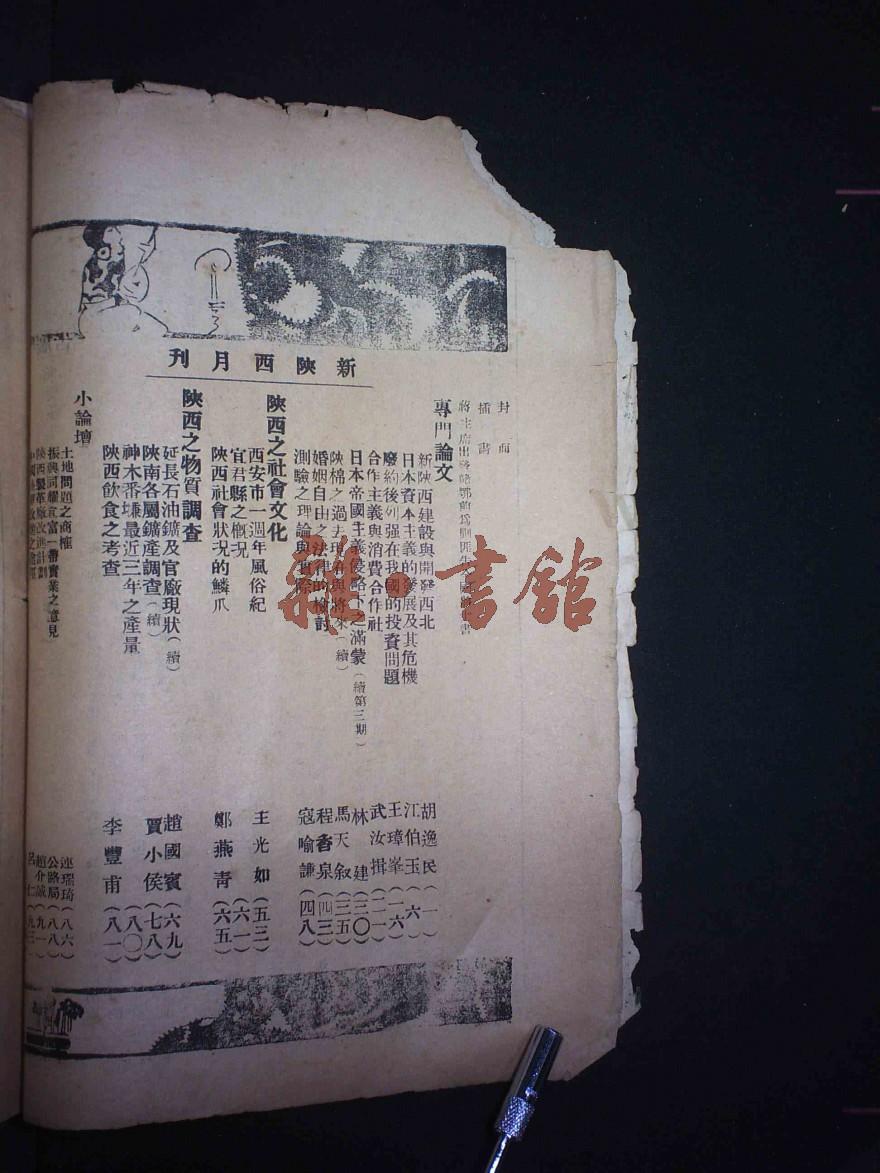 新陝西月刊
封面
插畫
蔣主席出發
專門論文
新陝西建設與開發西北
胡逸民(一)
日本資本主義的發展及其危機
江伯玉(六)
廢約後列强在我國的投資問題
王璋峯(一六)
合作主義與消費合作社
武汝揖(二一)
日本帝國主義侵略下之滿蒙(續第三期)
林建(三〇)
陝棉之過去現在與將來(續)
馬天敘(三五)
婚姻自由之法律的檢討
程香泉(四三)
測驗之理論與實際
寇喻謙(四八)
陝西之社會文化
西安市一週年風俗紀
王光如(五三)
宜君縣之概況
(六一)
陝西社會狀況的鱗爪
鄭燕青(六五)
陝西之物質調查
延長石油鑛及官廠現狀(續)
趙國賓(六九)
陝南各屬鑛產調查(續)
賈小侯(七八)
神木番壕最近三年之產量
(八〇)
陝西飲食之考查
李豐甫(八一)
小論壇
土地問題之商榷
連瑞琦(八六)
振興同耀宜富一番實業之意見
公路局(八八)
陝西製革廠改進計劃
趙介誠(九一)
呂仁(九三)
雜·書舘